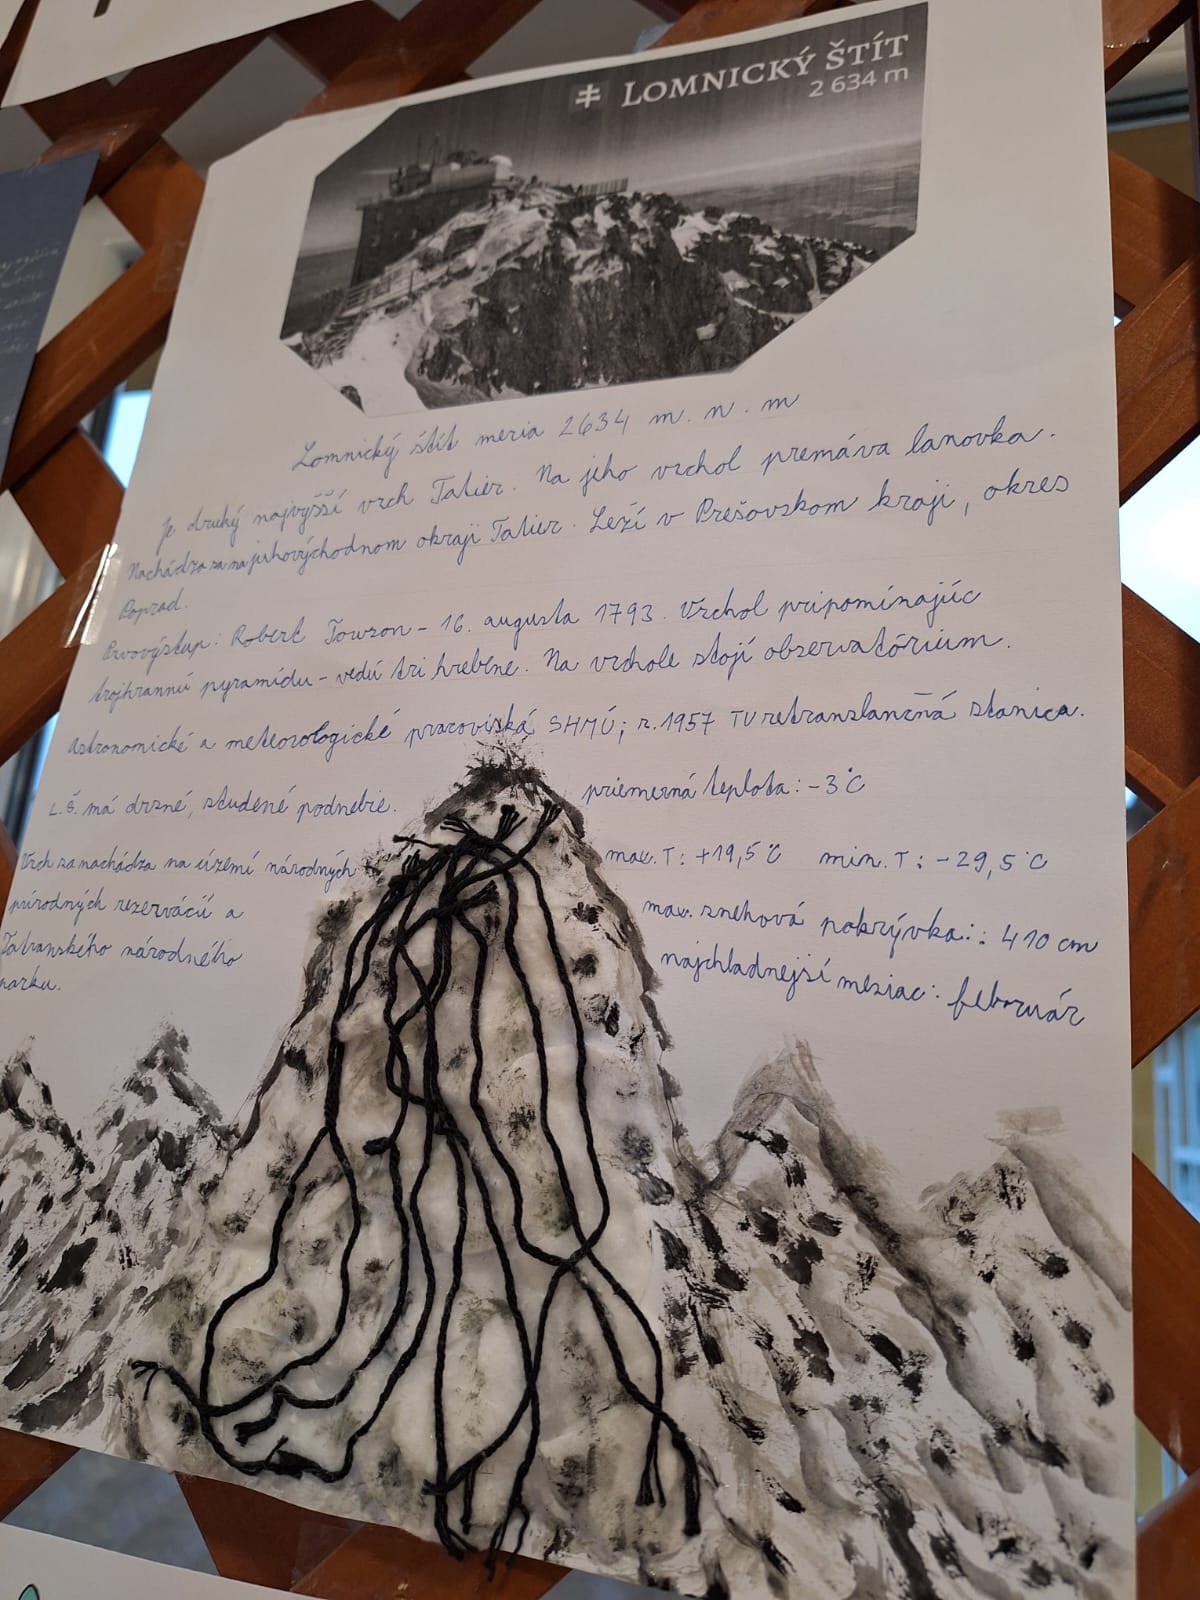 LOMNICKÝ ŠTÍT
2 634 m
Lomnický štít meria 2634 m. n. m
Je druhý najvyšší vrch Tatier. Na jeho vrchol premáva lanovka.
Nachádza sa na juhovýchodnom okraji Tatier. Leží v Prešovskom kraji, okres
Poprad.
Prvovýstup: Robert Towson - 16. augusta 1793. Vrchol pripomínajúc
trojhrannú pyramídu - vedú tri hrebene. Na vrchole stojí observatórium.
Astronomické a meteorologické pracoviská SHMÚ; r. 1957 TV retranslančná stanica.
L.Š. má drsné, studené podnebie.
priemerná teplota: -3°C
Vrch sa nachádza na území národných
prírodných rezervácií a
Tatranského národného
parku.
max. T: +19,5°C min. T: -29,5°C
max. snehová pokrývka: 410 cm
najchladnejší mesiac: február